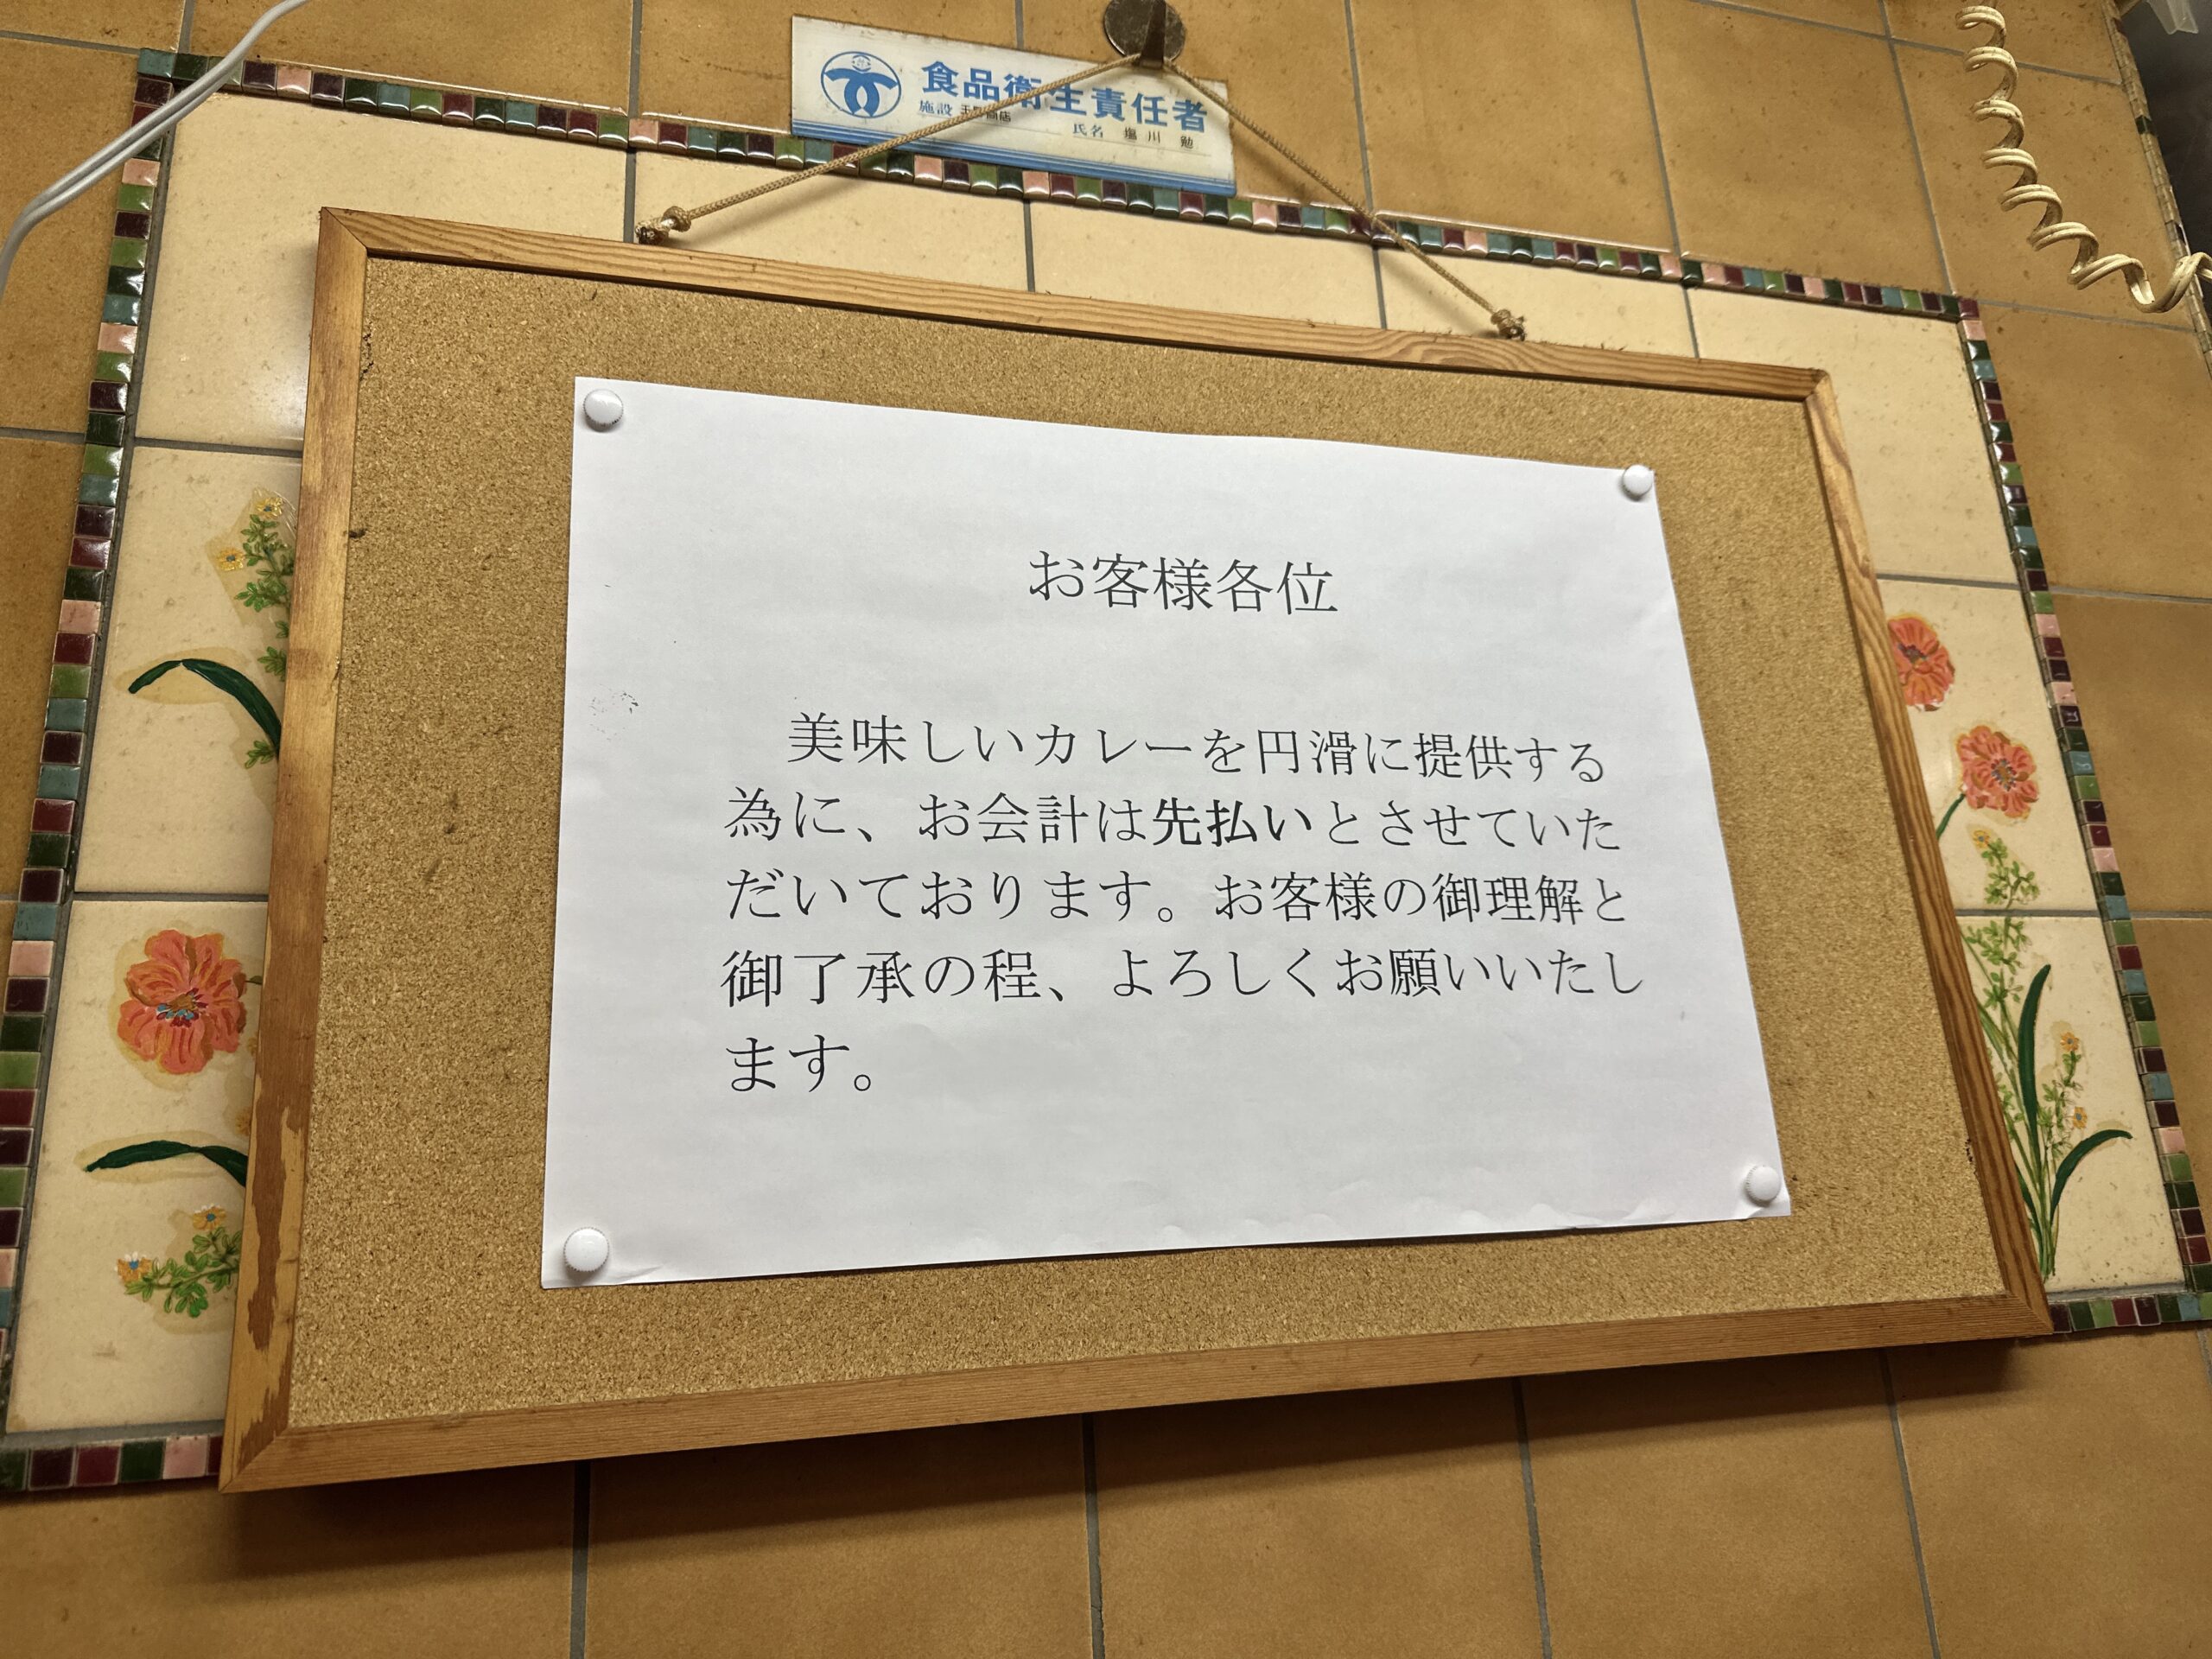 食品衛生責任者
施設 商店
氏名 塩川 勉
お客様各位
美味しいカレーを円滑に提供する
為に、お会計は先払いとさせていた
だいております。お客様の御理解と
御了承の程、よろしくお願いいたし
ます。